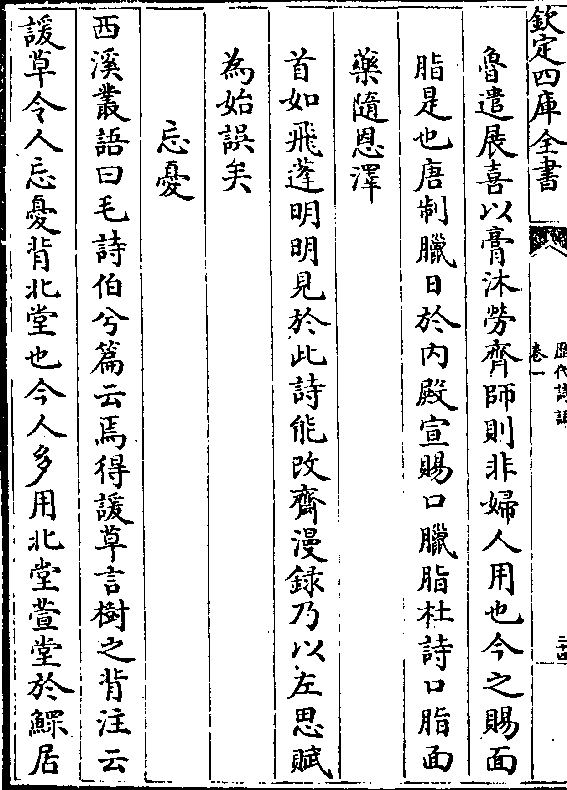 欽定四庫全書
歷代詩話
卷一
二十四
魯遣展喜以膏沐勞齊師則非婦人用也今之賜面
脂是也唐制臘日於内殿宣賜口臘脂杜詩口脂面
藥隨恩澤
首如飛蓬明明見於此詩能改齊漫録乃以左思賦
為始誤矣
忘憂
西溪叢語曰毛詩伯兮篇云焉得諼草言樹之背注云
諼草令人忘憂背北堂也今人多用北堂萱堂於鰥居